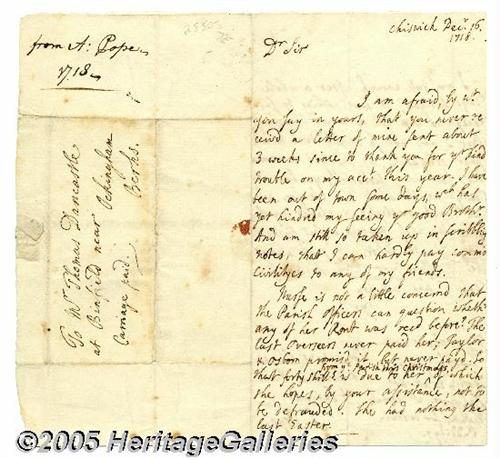 from A: Pope.
1718.
To Mr Thomas Dancastle
at Binfield near Ockingham
Berks.
Carriage paid.
Chiswick Decr. 16.
1718.
Dr Sir
I am afraid, by wt
you say in yours, that you never re
ceivd a letter of mine sent about
3 weeks since to thank you for yr kind
trouble on my acct this year. I have
been out of town some days, wch has
yet hindred my seeing yr good Brothr.
And am still so taken up in scribbling
notes, that I can hardly pay common
civilityes to any of my friends.
Nurse is not a little concernd that
the Parish Officers can question whethr
any of her Rent was recd before. The
last Overseers never paid her; Taylor
& Osborn promisd it, but never payd. So
from ye Parish this Christmass,
that forty shills is due to her of which
she hopes, by your assistance, not to
be defrauded. She had nothing the
last Easter.
©2005 HeritageGalleries